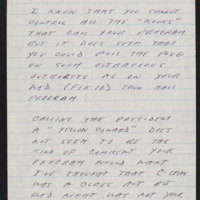 I KNOW THAT YOU CANNOT
CONTROL ALL THE "KOOKS"
THAT CALL YOUR PROGRAM
BUT IT DOES SEEM THAT
YOU COULD PULL THE PLUG
ON SUCH OUTRAGEOUS
OUTBURSTS AS ON YOUR
WED. (FEB. 10) 5PM CALL
PROGRAM.
CALLING THE PRESIDENT
A "YELLOW COWARD" DOES
NOT SEEM TO BE THE
KIND OF COMMENT YOUR
PROGRAM WOULD WANT
I'VE THOUGHT THAT C-SPAN
WAS A CLASS ACT BUT
WED. NIGHT WAS NOT YOUR